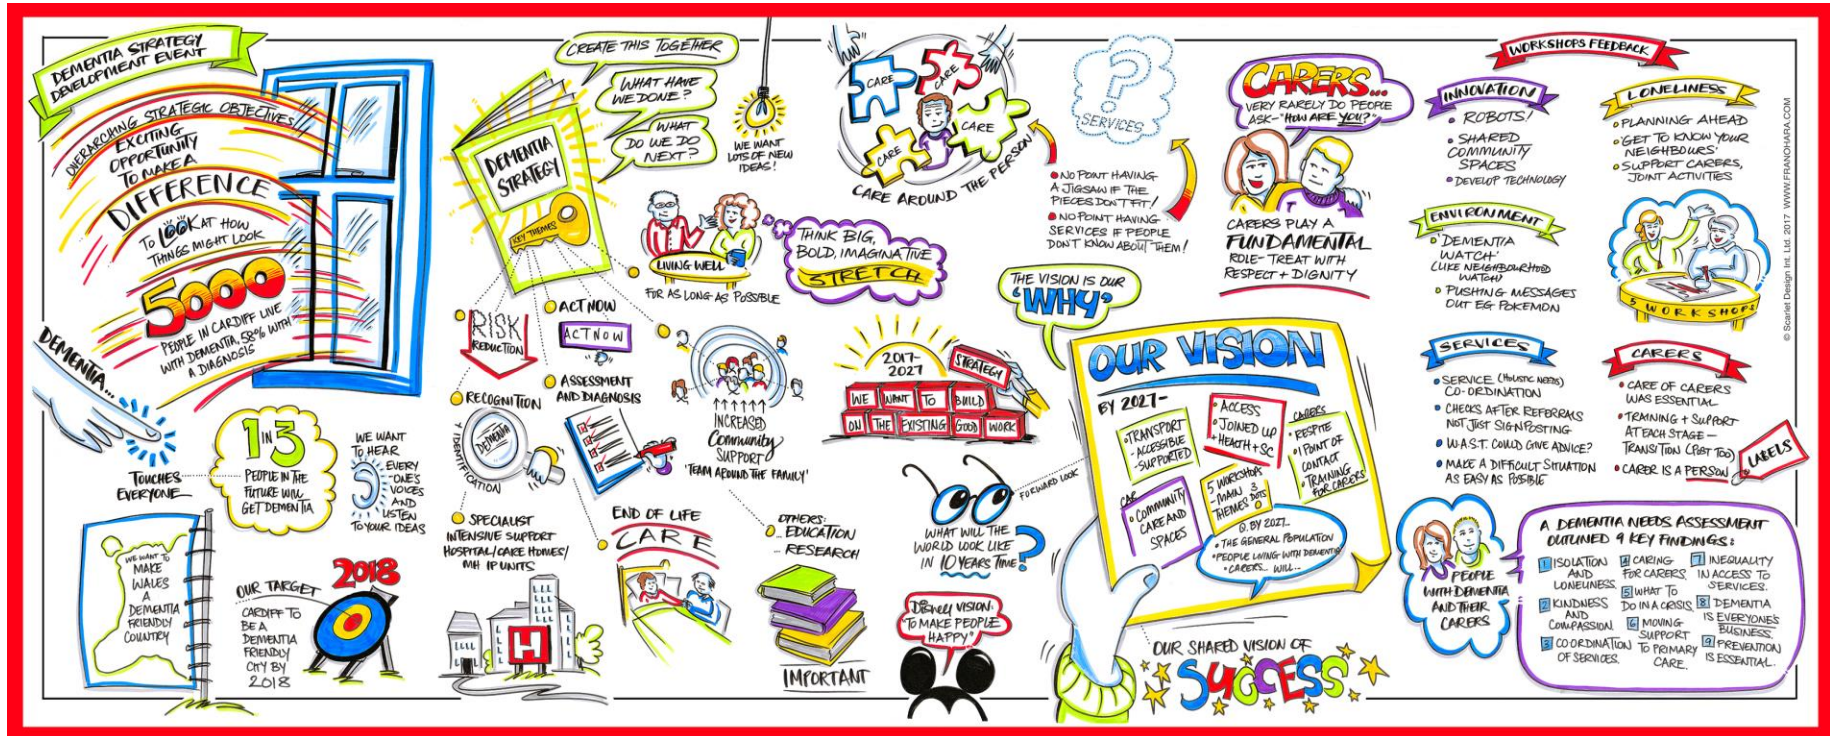 DEMENTIA STRATEGY
DEVELOPMENT EVENT
OVERARCHING STRATEGIC OBJECTIVES
EXCITING
OPPORTUNITY
TO MAKE A
DIFFERENCE
TO LOOK AT HOW
THINGS MIGHT LOOK
5000
PEOPLE IN CARDIFF LIVE
WITH DEMENTIA, 58% WITH
A DIAGNOSIS
DEMENTIA...
TOUCHES
EVERYONE
1 IN 3
PEOPLE IN THE
FUTURE WILL
GET DEMENTIA
WE WANT
TO HEAR
EVERY
ONE'S
VOICES
AND
LISTEN
TO YOUR IDEAS
WE WANT TO
MAKE
WALES
A
DEMENTIA
FRIENDLY
COUNTRY
OUR TARGET
2018
CARDIFF TO
BE A
DEMENTIA
FRIENDLY
CITY BY
2018
CREATE THIS TOGETHER
WHAT HAVE
WE DONE?
WHAT
DO WE DO
NEXT?
DEMENTIA
STRATEGY
KEY THEMES
WE WANT
LOTS OF NEW
IDEAS!
LIVING WELL
FOR AS LONG AS POSSIBLE
THINK BIG,
BOLD, IMAGINATIVE
STRETCH
RISK
REDUCTION
ACT NOW
ACT NOW
RECOGNITION
IDENTIFICATION
DEMENTIA
ASSESSMENT
AND DIAGNOSIS
INCREASED
Community
SUPPORT
'TEAM AROUND THE FAMILY'
SPECIALIST
INTENSIVE SUPPORT
HOSPITAL/CARE HOMES/
MH IP UNITS
H
END OF LIFE
CARE
OTHERS:
- EDUCATION
- RESEARCH
IMPORTANT
CARE
CARE
CARE
CARE
CARE AROUND THE PERSON
?
SERVICES
NO POINT HAVING
A JIGSAW IF THE
PIECES DON'T FIT!
NO POINT HAVING
SERVICES IF PEOPLE
DON'T KNOW ABOUT THEM!
CARERS...
VERY RARELY DO PEOPLE
ASK - "HOW ARE YOU?"
CARERS PLAY A
FUNDAMENTAL
ROLE - TREAT WITH
RESPECT + DIGNITY
THE VISION IS OUR
'WHY'
2017-
2027
STRATEGY
WE WANT TO BUILD
ON THE EXISTING GOOD WORK
FORWARD LOOK
WHAT WILL THE
WORLD LOOK LIKE
IN 10 YEARS TIME?
Disney VISION:
"TO MAKE PEOPLE
HAPPY"
OUR VISION
BY 2027-
• TRANSPORT
- ACCESSIBLE
- SUPPORTED
• ACCESS
• JOINED UP
+ HEALTH + SC
CARERS
• RESPITE
• 1 POINT OF
CONTACT
• TRAINING
FOR CARERS
CAR
• COMMUNITY
CARE AND
SPACES
5 WORKSHOPS
- MAIN 3
THEMES DOTS
Q. BY 2027...
• THE GENERAL POPULATION
• PEOPLE LIVING WITH DEMENTIA
• CARERS... WILL...
OUR SHARED VISION OF
SUCCESS
WORKSHOPS FEEDBACK
INNOVATION
• ROBOTS!
• SHARED
COMMUNITY
SPACES
• DEVELOP TECHNOLOGY
LONELINESS
• PLANNING AHEAD
• 'GET TO KNOW YOUR
NEIGHBOURS'
• SUPPORT CARERS,
JOINT ACTIVITIES
ENVIRONMENT
• 'DEMENTIA
WATCH'
(LIKE NEIGHBOURHOOD
WATCH)
• PUSHING MESSAGES
OUT EG POKEMON
5 WORKSHOPS
SERVICES
• SERVICE (HOLISTIC NEEDS)
CO-ORDINATION
• CHECKS AFTER REFERRALS
NOT JUST SIGNPOSTING
• W.A.S.T. COULD GIVE ADVICE?
• MAKE A DIFFICULT SITUATION
AS EASY AS POSSIBLE
CARERS
• CARE OF CARERS
WAS ESSENTIAL
• TRAINING + SUPPORT
AT EACH STAGE -
TRANSITION (POST TOO)
• CARER IS A PERSON
LABELS
PEOPLE
WITH DEMENTIA
AND THEIR
CARERS
A DEMENTIA NEEDS ASSESSMENT
OUTLINED 9 KEY FINDINGS:
1 ISOLATION
AND
LONELINESS
2 KINDNESS
AND
COMPASSION
3 CO-ORDINATION
OF SERVICES.
4 CARING
FOR CARERS
5 WHAT TO
DO IN A CRISIS
6 MOVING
SUPPORT
TO PRIMARY
CARE.
7 INEQUALITY
IN ACCESS TO
SERVICES.
8 DEMENTIA
IS EVERYONE'S
BUSINESS.
9 PREVENTION
IS ESSENTIAL.
© Scarlet Design Int. Ltd. 2017 WWW.FRANOHARA.COM